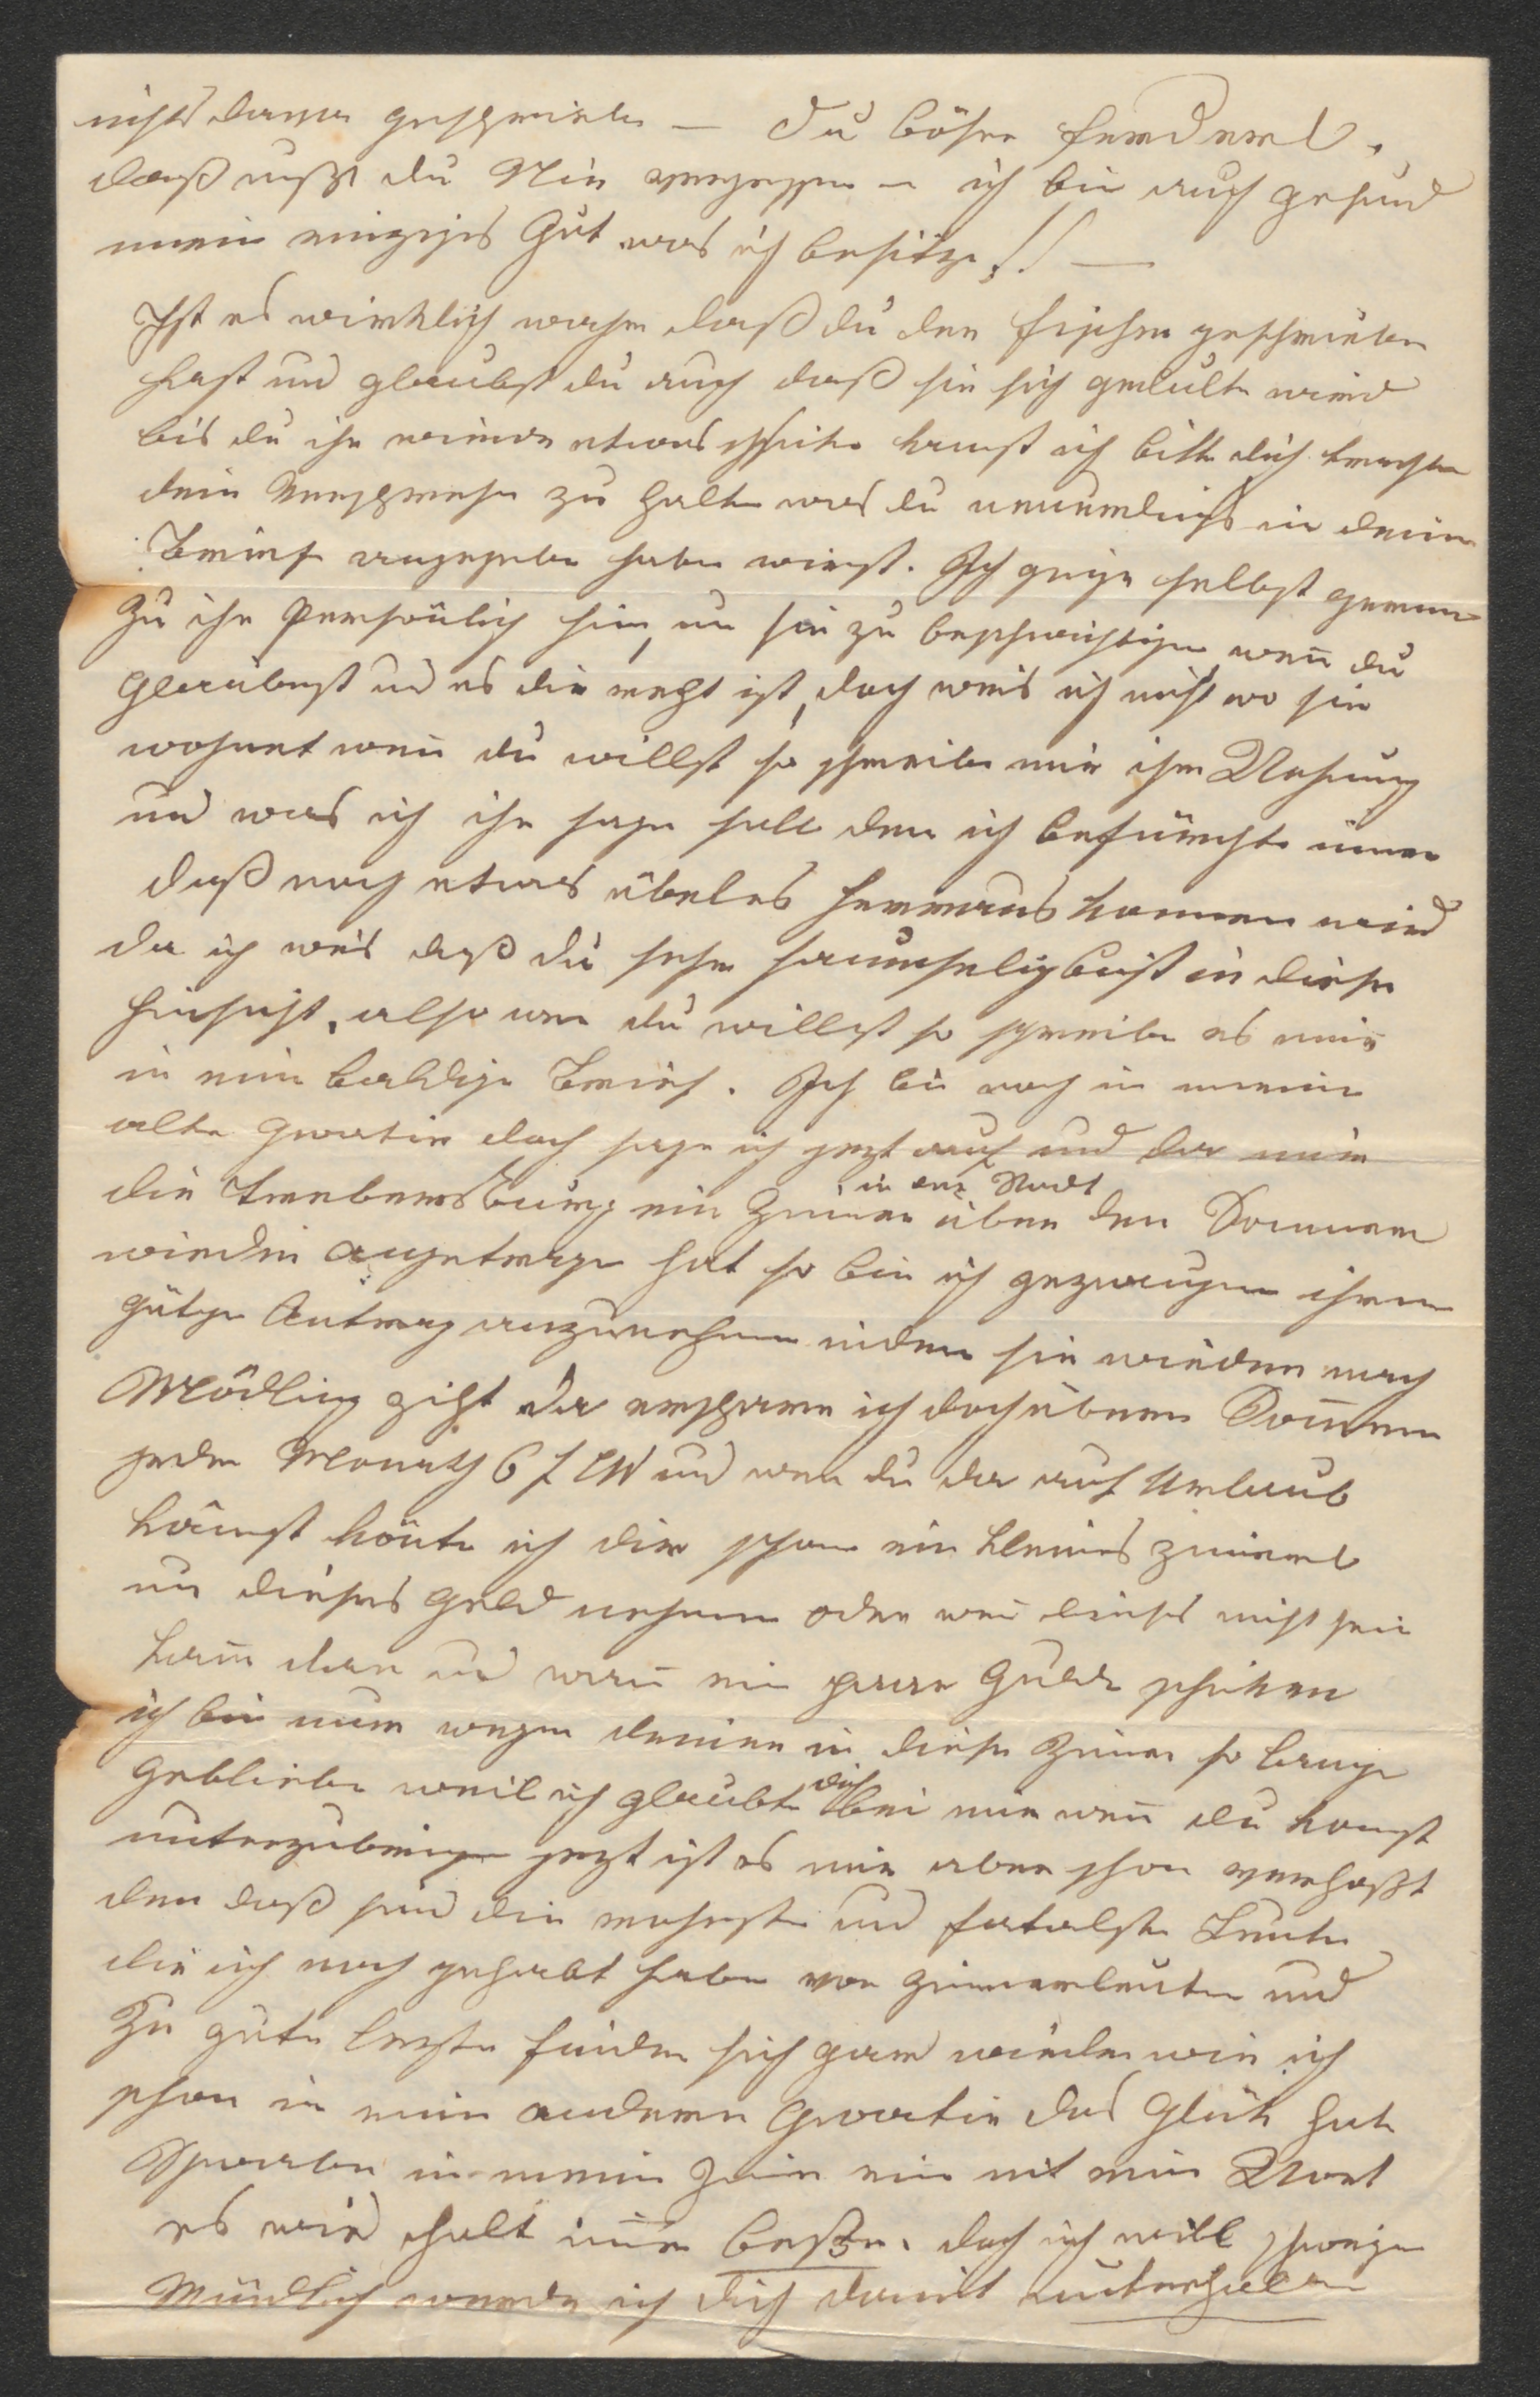 nichts davon geschrieben — Du böser Ferderl.
daß mußt du Mir vergessen — ich bin auch gesund
mein einziges Gut was ich besitze!! —
Ist es wirklich wahr daß du der Fischer geschrieben
hast und glaubst du auch daß sie sich gedulte wird
bis du ihr wieder etwas schiken kanst ich bitte dich trachte
dein Versprechen zu halten was du neuerdings in deinen
Briefe angegeben haben wirst. Ich ginge selbst gerne
zu ihr Persönlich hin, um sie zu beschwichtigen wen̄ du
glaubest und es dir recht ist, doch weis ich nicht wo sie
wohnet wen̄ du willst so schreibe mir ihre Wohnung
und was ich ihr sagen soll den ich befürchte immer
daß noch etwas übeles herraus kommen wird
da ich weis daß du sehr saumselig bist in dieser
Hinsicht, also wen du willst so schreibe es mir
in ein baldigen Brief. Ich bin noch in meine
alte Quartir doch sage ich jezt auf und da mir
die Trebersburg ein Zimmer über den Sommer
in der Stadt
wieder angetragen hat so bin ich gezwungen ihren
gütigen Antrag anzunehmen indem sie wieder nach
Mödling zieht da erspare ich doch übern Som̄mer
jeden Monath 6 f CM und wen du da auf Urlaub
kämst kön̄te ich dir schon ein kleines Zimmerl
um dieses Geld nehmen oder wen̄ dieses nicht sein
kan̄ dan und wan̄ ein paar Gulden schiken
ich bin nur wegen deiner in diesen Zimmer so lange
geblieben weil ich glaubte dich bei mir wen̄ du komst
unterzubringen jezt ist es mir aber schon verhaßt
den daß sind die rohesten und fatalsten Leute
die ich noch gehabt habe von Zimmerleuten und
zu gute lezte finden sich gar wieder wie ich
schon in ein anderen Quartir das Glük hate
Schwaben in mein Zimer ein mit ein Wort
es wird halt im̄er beßer. doch ich will schweigen
Mündlich werde ich dich damit unterhalten